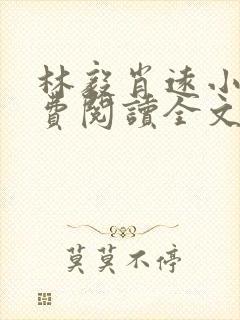 林毅肖遠小
費閱讀全文
莫莫不停